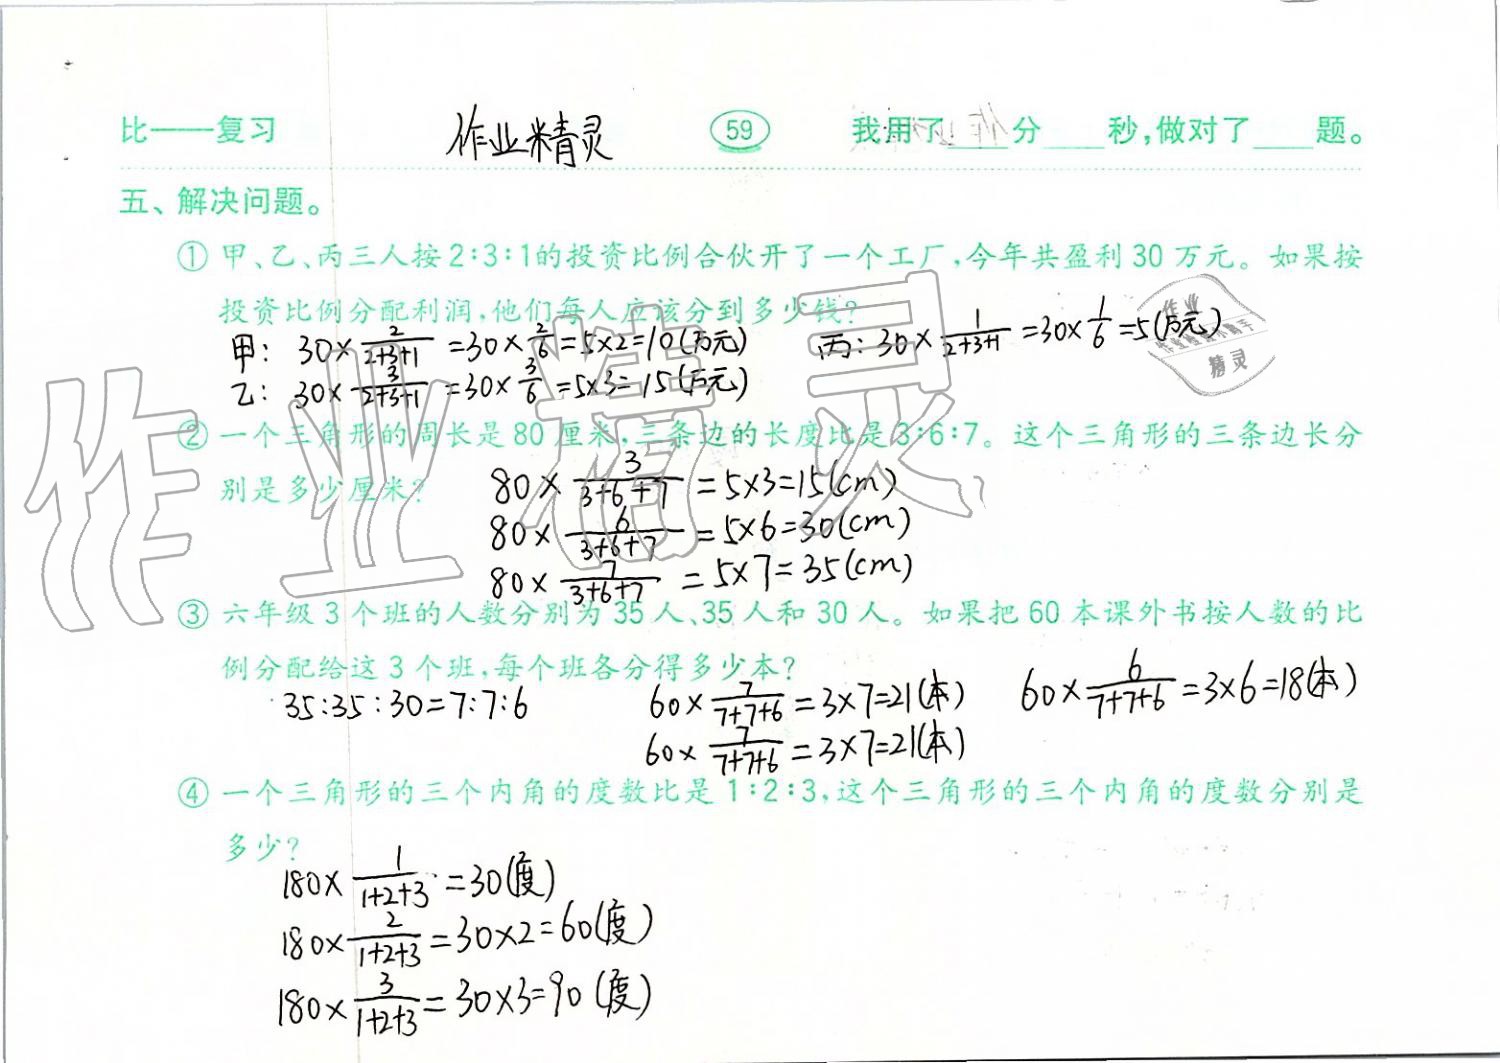 比——复习 作业精灵 59 我用了____分____秒,做对了____题。
五、解决问题。
① 甲、乙、丙三人按2:3:1的投资比例合伙开了一个工厂,今年共盈利30万元。如果按
投资比例分配利润,他们每人应该分到多少钱?
甲: 30×2/(2+3+1)=30×2/6=5×2=10(万元) 丙: 30×1/(2+3+1)=30×1/6=5(万元)
乙: 30×3/(2+3+1)=30×3/6=5×3=15(万元)
② 一个三角形的周长是80厘米,三条边的长度比是3:6:7。这个三角形的三条边长分
别是多少厘米?
80×3/(3+6+7)=5×3=15(cm)
80×6/(3+6+7)=5×6=30(cm)
80×7/(3+6+7)=5×7=35(cm)
③ 六年级3个班的人数分别为35人、35人和30人。如果把60本课外书按人数的比
例分配给这3个班,每个班各分得多少本?
35:35:30=7:7:6 60×7/(7+7+6)=3×7=21(本) 60×6/(7+7+6)=3×6=18(本)
60×7/(7+7+6)=3×7=21(本)
④ 一个三角形的三个内角的度数比是1:2:3,这个三角形的三个内角的度数分别是
多少?
180×1/(1+2+3)=30(度)
180×2/(1+2+3)=30×2=60(度)
180×3/(1+2+3)=30×3=90(度)
作业精灵
作业
精灵